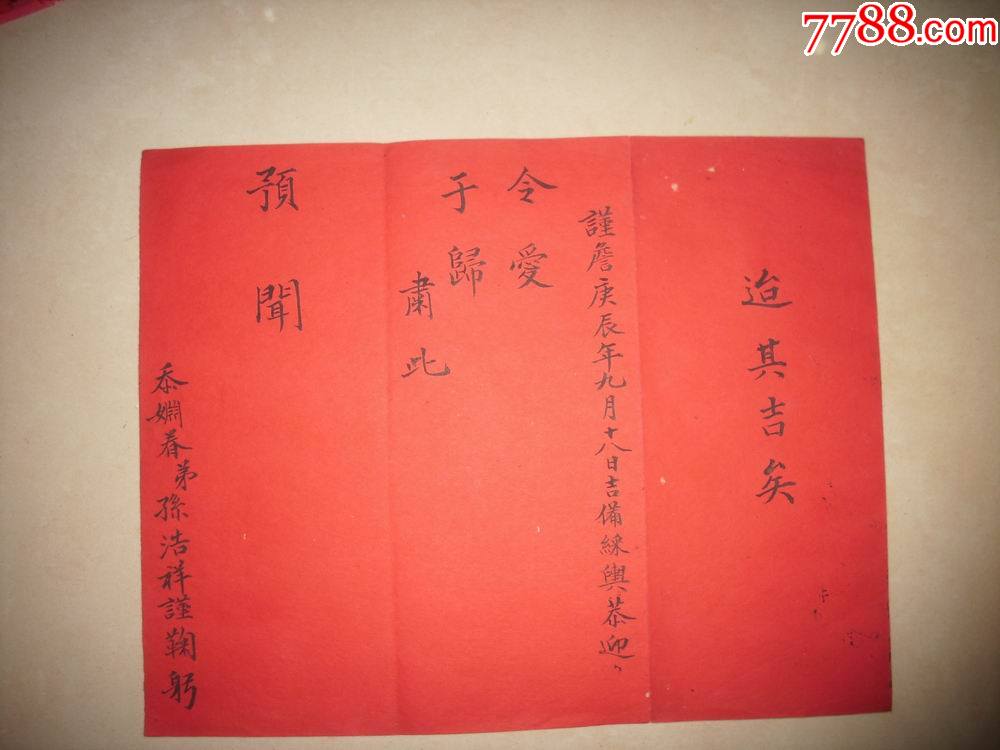 7788.com
迨其吉矣
謹詹庚辰年九月十八日吉備綵輿恭迎
令愛
于歸
肅此
預聞
忝姻眷弟孫浩祥謹鞠躬